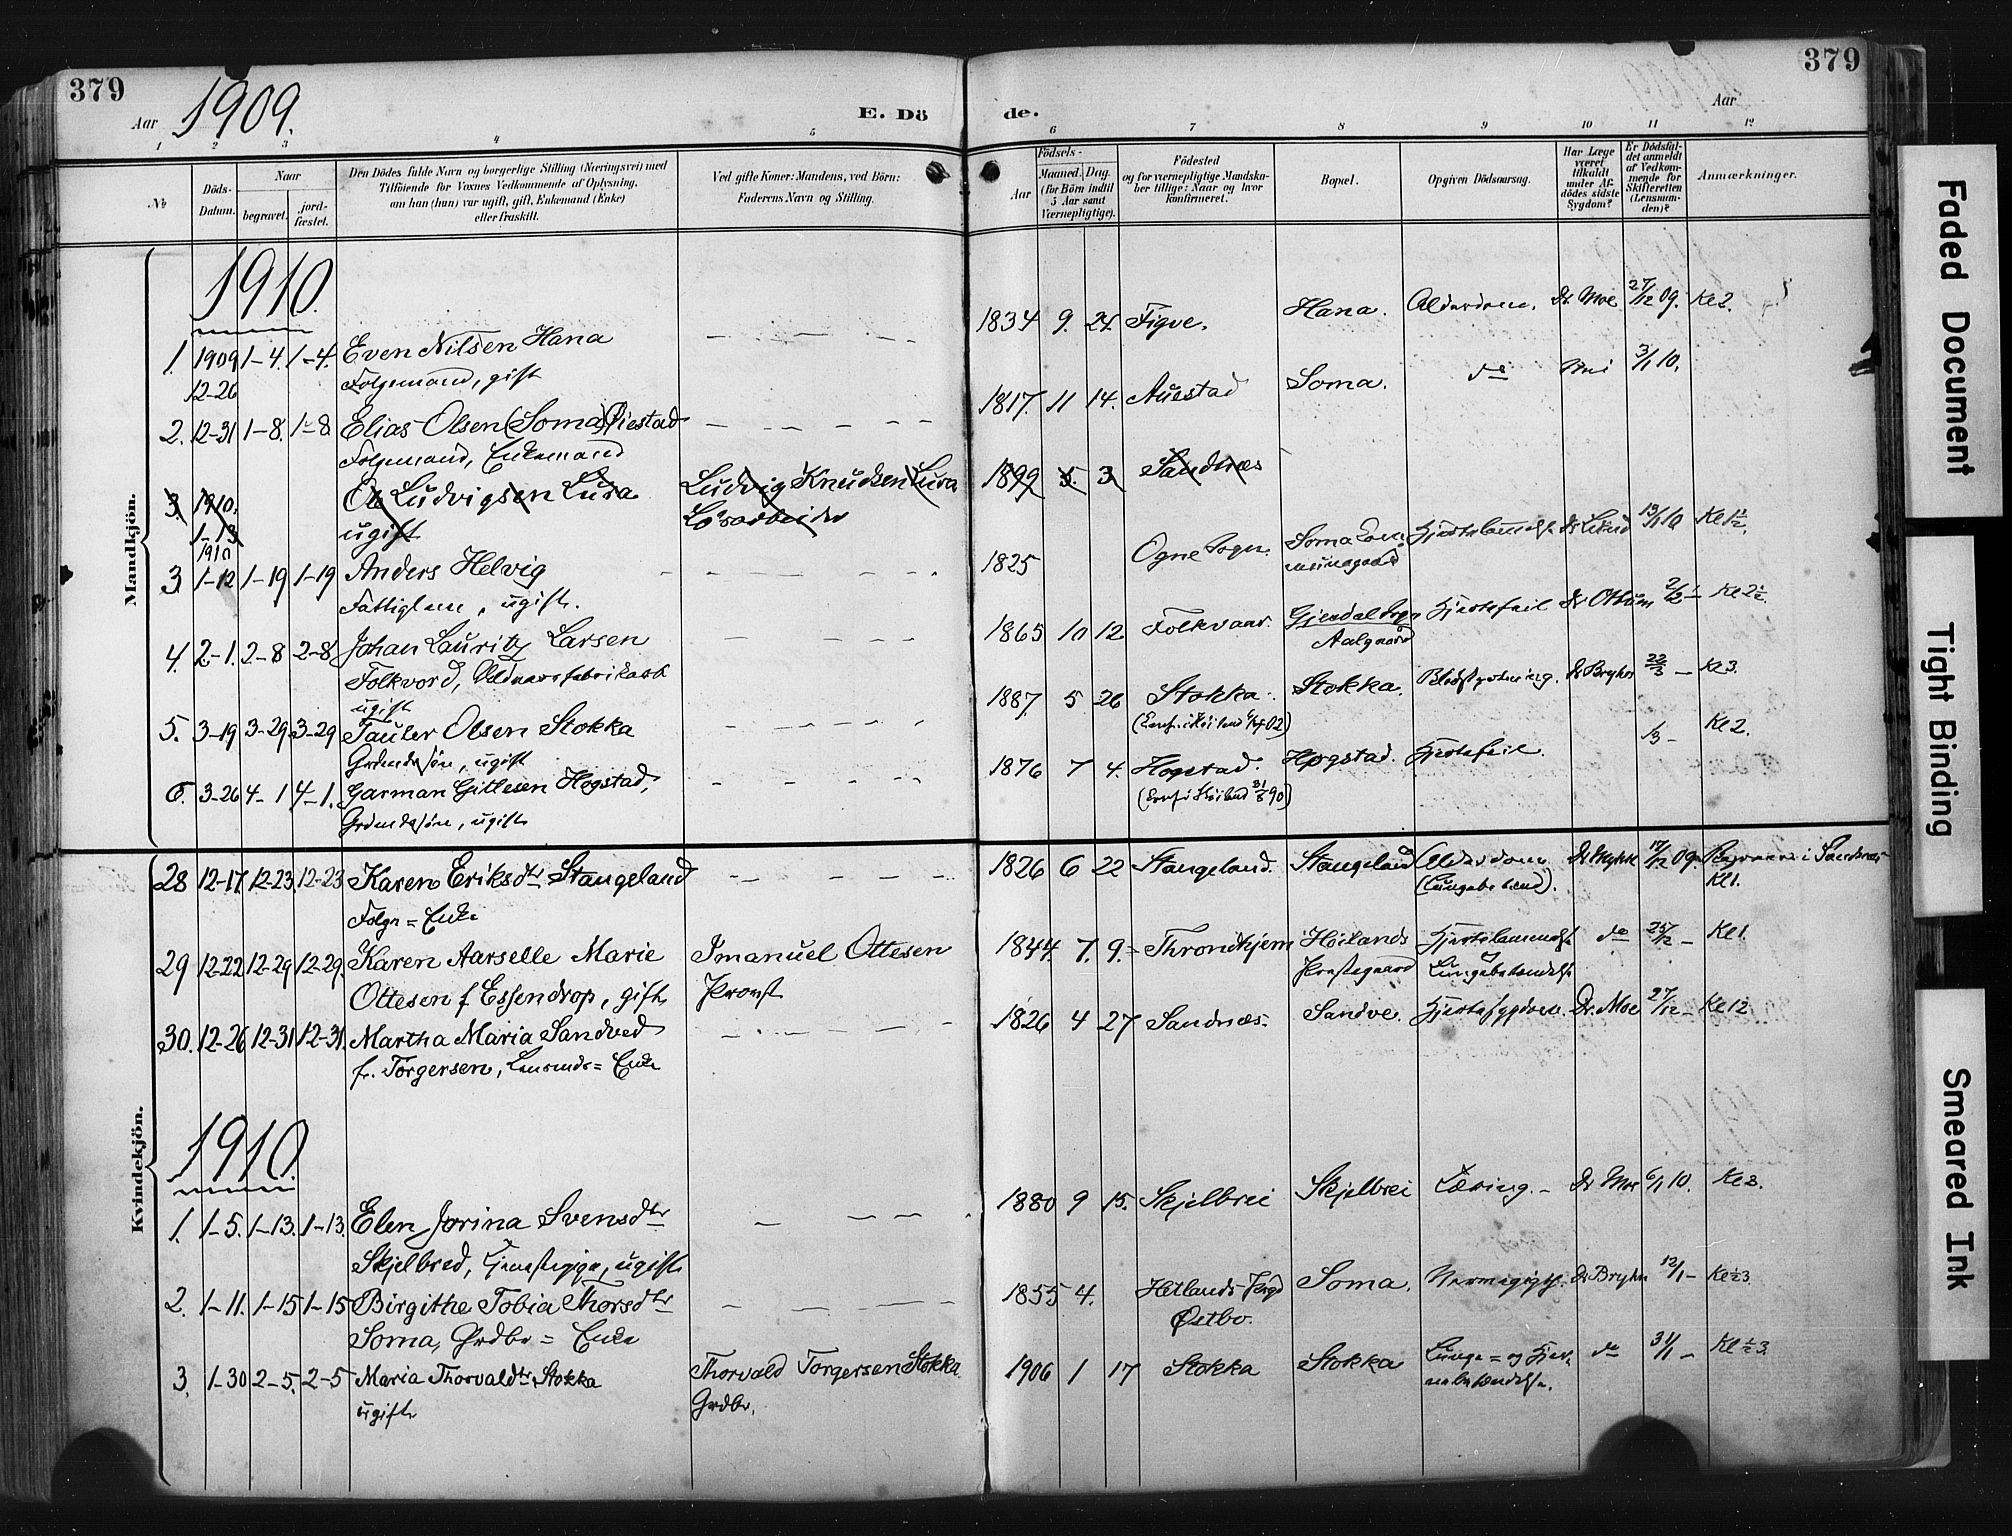 379
379
Aar 1909.
E. Dö
de.
Aar
1
2
3
4
5
6
7
8
9
10
11
12
№
Döds-
Datum.
Naar
begravet.
jord-
fæstet.
Den Dödes fulde Navn og borgerlige Stilling (Næringsvei) med
Tilföiende for Voxnes Vedkommende af Oplysning,
om han (hun) var ugift, gift, Enkemand (Enke)
eller fraskilt.
Ved gifte Koner: Mandens, ved Börn:
Faderens Navn og Stilling.
Födsels-
Aar
Maaned. Dag.
(for Börn indtil
5 Aar samt
Værnepligtige).
Födested
og for værnepligtige Mandska-
ber tillige: Naar og hvor
konfirmeret.
Bopæl.
Opgiven Dödsaarsag.
Har Læge
været
tilkaldt
under Af-
dödes sidste
Sygdom?
Er Dödsfal-
det anmeldt
af Vedkom-
mende for
Skifteretten
(Lensman-
den)?
Anmærkninger.
Mandkjön.
1910.
1. 1909 1-4. 1-4. Even Nilsen Hana 1834 9. 24. Figve. Hana. Alderdom. Dr Moe 27/12 09. Kl 2.
12-26 Folgemand, gift
2. 12-31 1-8. 1-8. Elias Olsen (Soma) Øiestad 1817. 11 14. Auestad Soma. do Nei 3/1 10.
Folgemand, Enkemand
3. 1910. Ole Ludvigsen Lura Ludvig Knudsen Lura 1899 5. 3 Sandnæs
1-13 ugift Løsarbeider
1910
3. 1-12 1-19 1-19 Anders Helvig 1825 Ogne Sogn. Soma Com- Hjertelammelse Dr Lund 13/1 10 Kl 1½.
Fattiglem, ugift. munegaard
4. 2-1. 2-8 2-8 Johan Lauritz Larsen 1865 10 12 Folkvaar Gjesdal Sogn Hjertefeil 2/2 - Kl 2½.
Folkvord, Uldvarefabrikarb Aalgaard
ugift
5. 3-19 3-29 3-29 Tauler Olsen Stokka 1887. 5 26 Stokka. Stokka. Blodstyrtning. Dr Bryhn 22/3 - Kl 3.
Grdmdssøn, ugift
6. 3-26 4-1 4-1. Garman Gittesen Hogstad, 1876 7 4. Hogstad. Høgstad. Hjertefeil. Kl 2.
Grdmdssøn, ugift
Kvindekjön.
28 12-17. 12-23 12-23 Karen Eriksdtr Stangeland 1826 6 22 Stangeland. Stangeland Alderdom 17/12 09. Begraven i Sandnæs
Folge=Enke (Lungebetænd). Kl 1.
29 12-22 12-29 12-29. Karen Aarselle Marie Imanuel Ottesen 1844 7. 9. Throndhjem Høilands Hjertelammelse do 25/12 - Kl 1.
Ottesen f Essendrop, gift Provst Prestegaard Lungebetændelse
30. 12-26 12-31 12-31. Martha Maria Sandved 1826 4 27 Sandnæs. Sandve. Hjertesygdom. Dr. Moe 27/12 - Kl 12
f. Torgersen, Lensmds=Enke
1910
1. 1-5. 1-13. 1-13. Elen Jorina Svensdtr 1880 9 15. Skjelbrei Skjelbrei Tæring.- Dr Moe 6/1 10. Kl 3.
Skjelbred, Tjenestepige, ugift
2. 1-11. 1-15 1-15 Birgithe Tobia Thorsdtr 1855 4. Hetlands- Soma. Dr Bryhn 12/1 - Kl ½3.
Soma, Grdbr=Enke Østbo.
3. 1-30 2-5. 2-5 Maria Thorvaldtr Stokka Thorvald Torgersen Stokka 1906 1 17 Stokka Stokka Lunge= og Hjer- do 31/1 - Kl ½3.
ugift Grdbr. nebetændelse.
Faded Document
Tight Binding
Smeared Ink